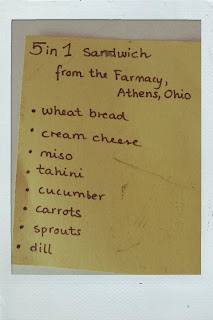 5 in 1 sandwich
from the Farmacy,
Athens, Ohio
• wheat bread
• cream cheese
• miso
• tahini
• cucumber
• carrots
• sprouts
• dill